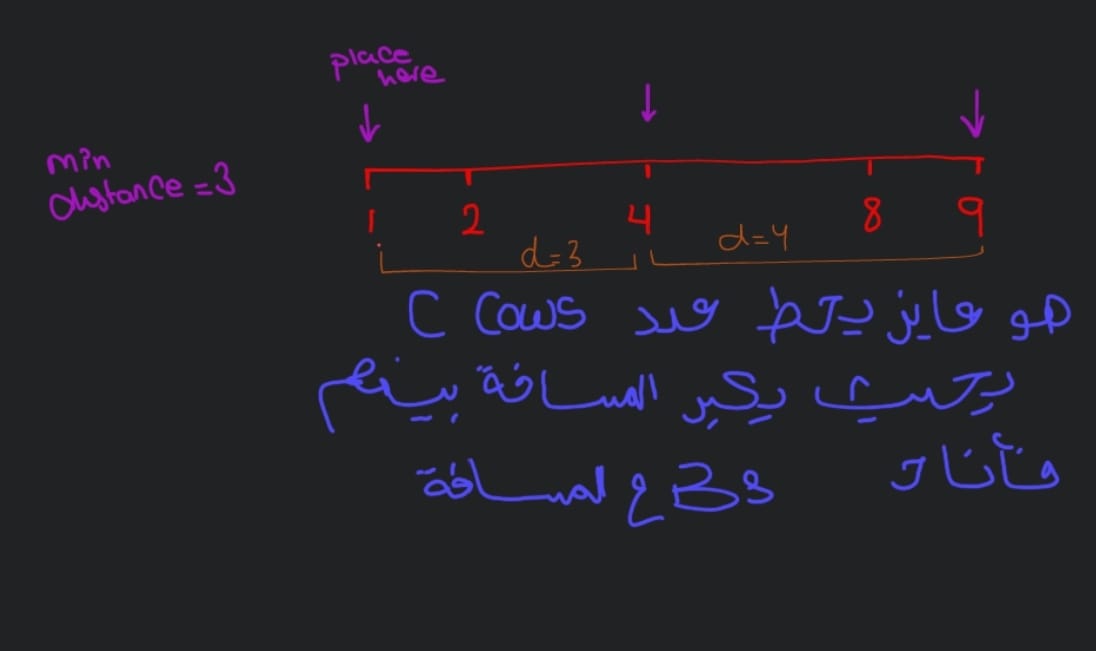 place
here
min
distance = 3
1 2 4 8 9
d=3 d=4
هو عايز يحط عدد C Cows
بحيث يكبر المسافة بينهم
فأنا BS ع المسافة